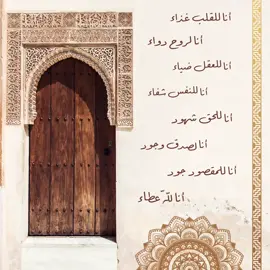 أنا للقلب غذاء
أنا لروح دواء
أنا للعقل ضياء
أنا للنفس شفاء
أنا للحق شهود
أنا لصدق وجود
أنا للمقصود جود
أنا للّه عطاء